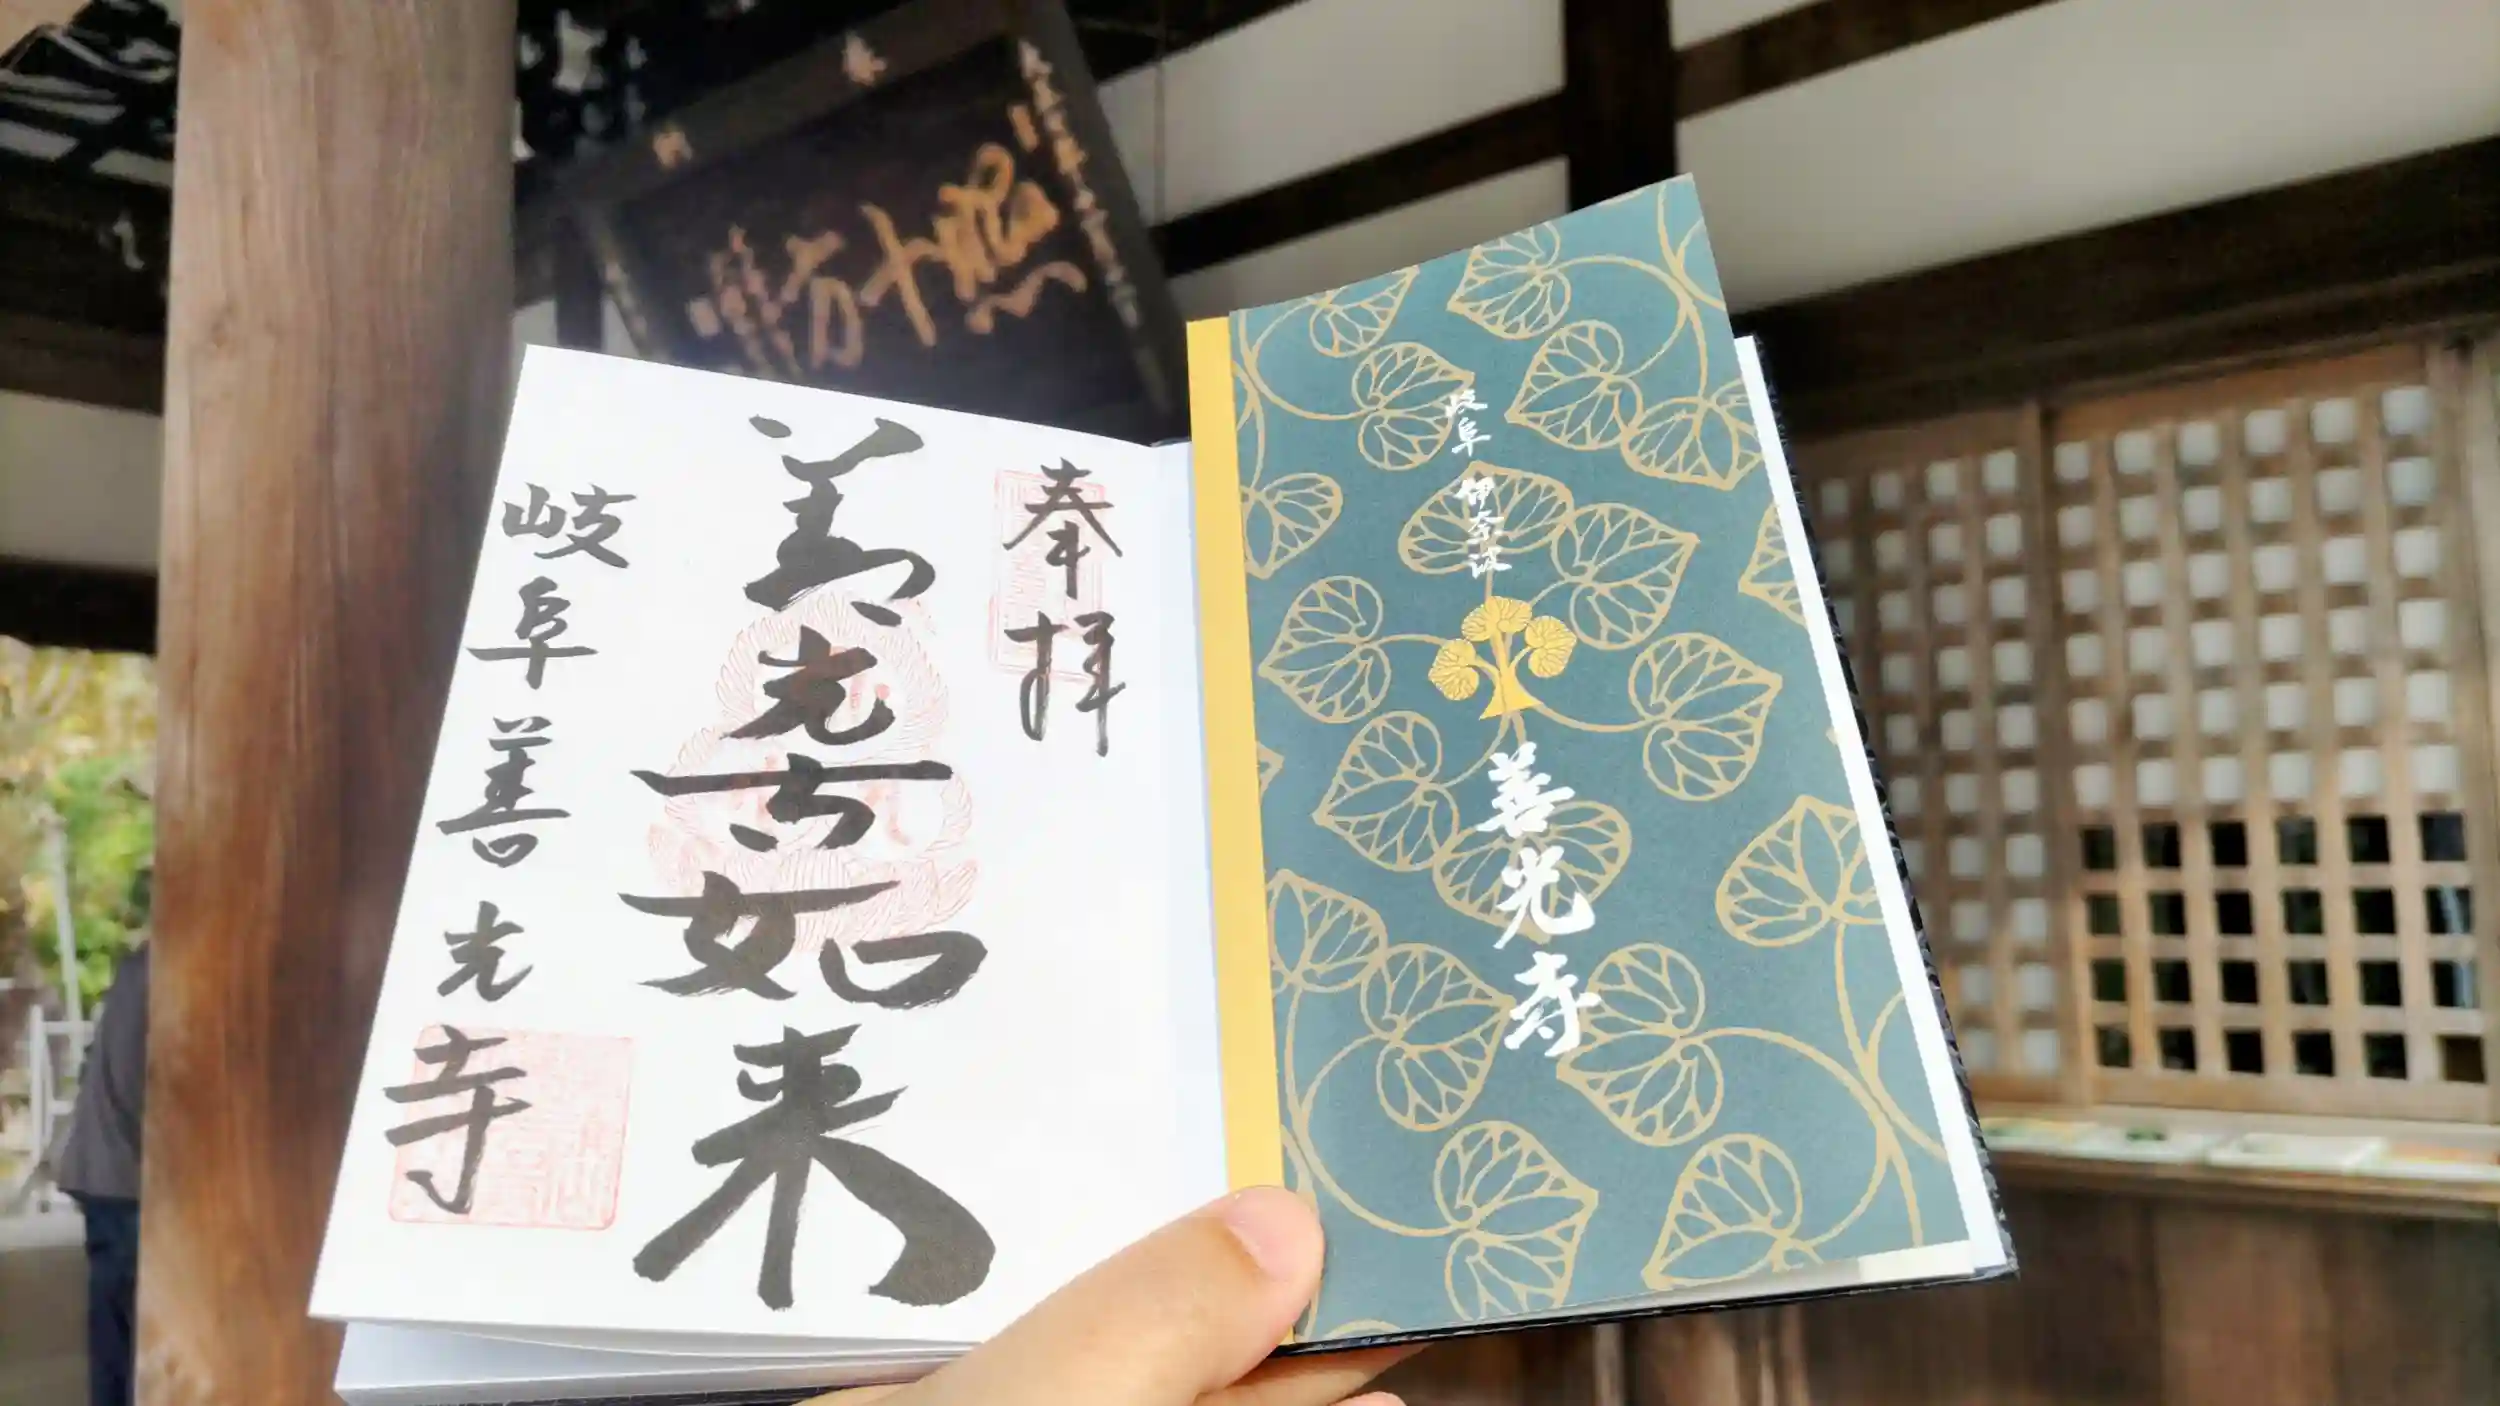 照十方
岐阜 伊奈波
善光寺
奉拝
善光寺如来
岐阜善光寺